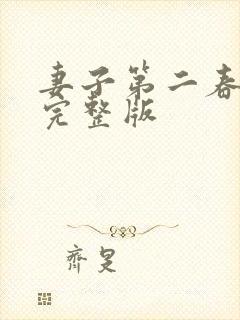 妻子第二春
完整版
齊旻